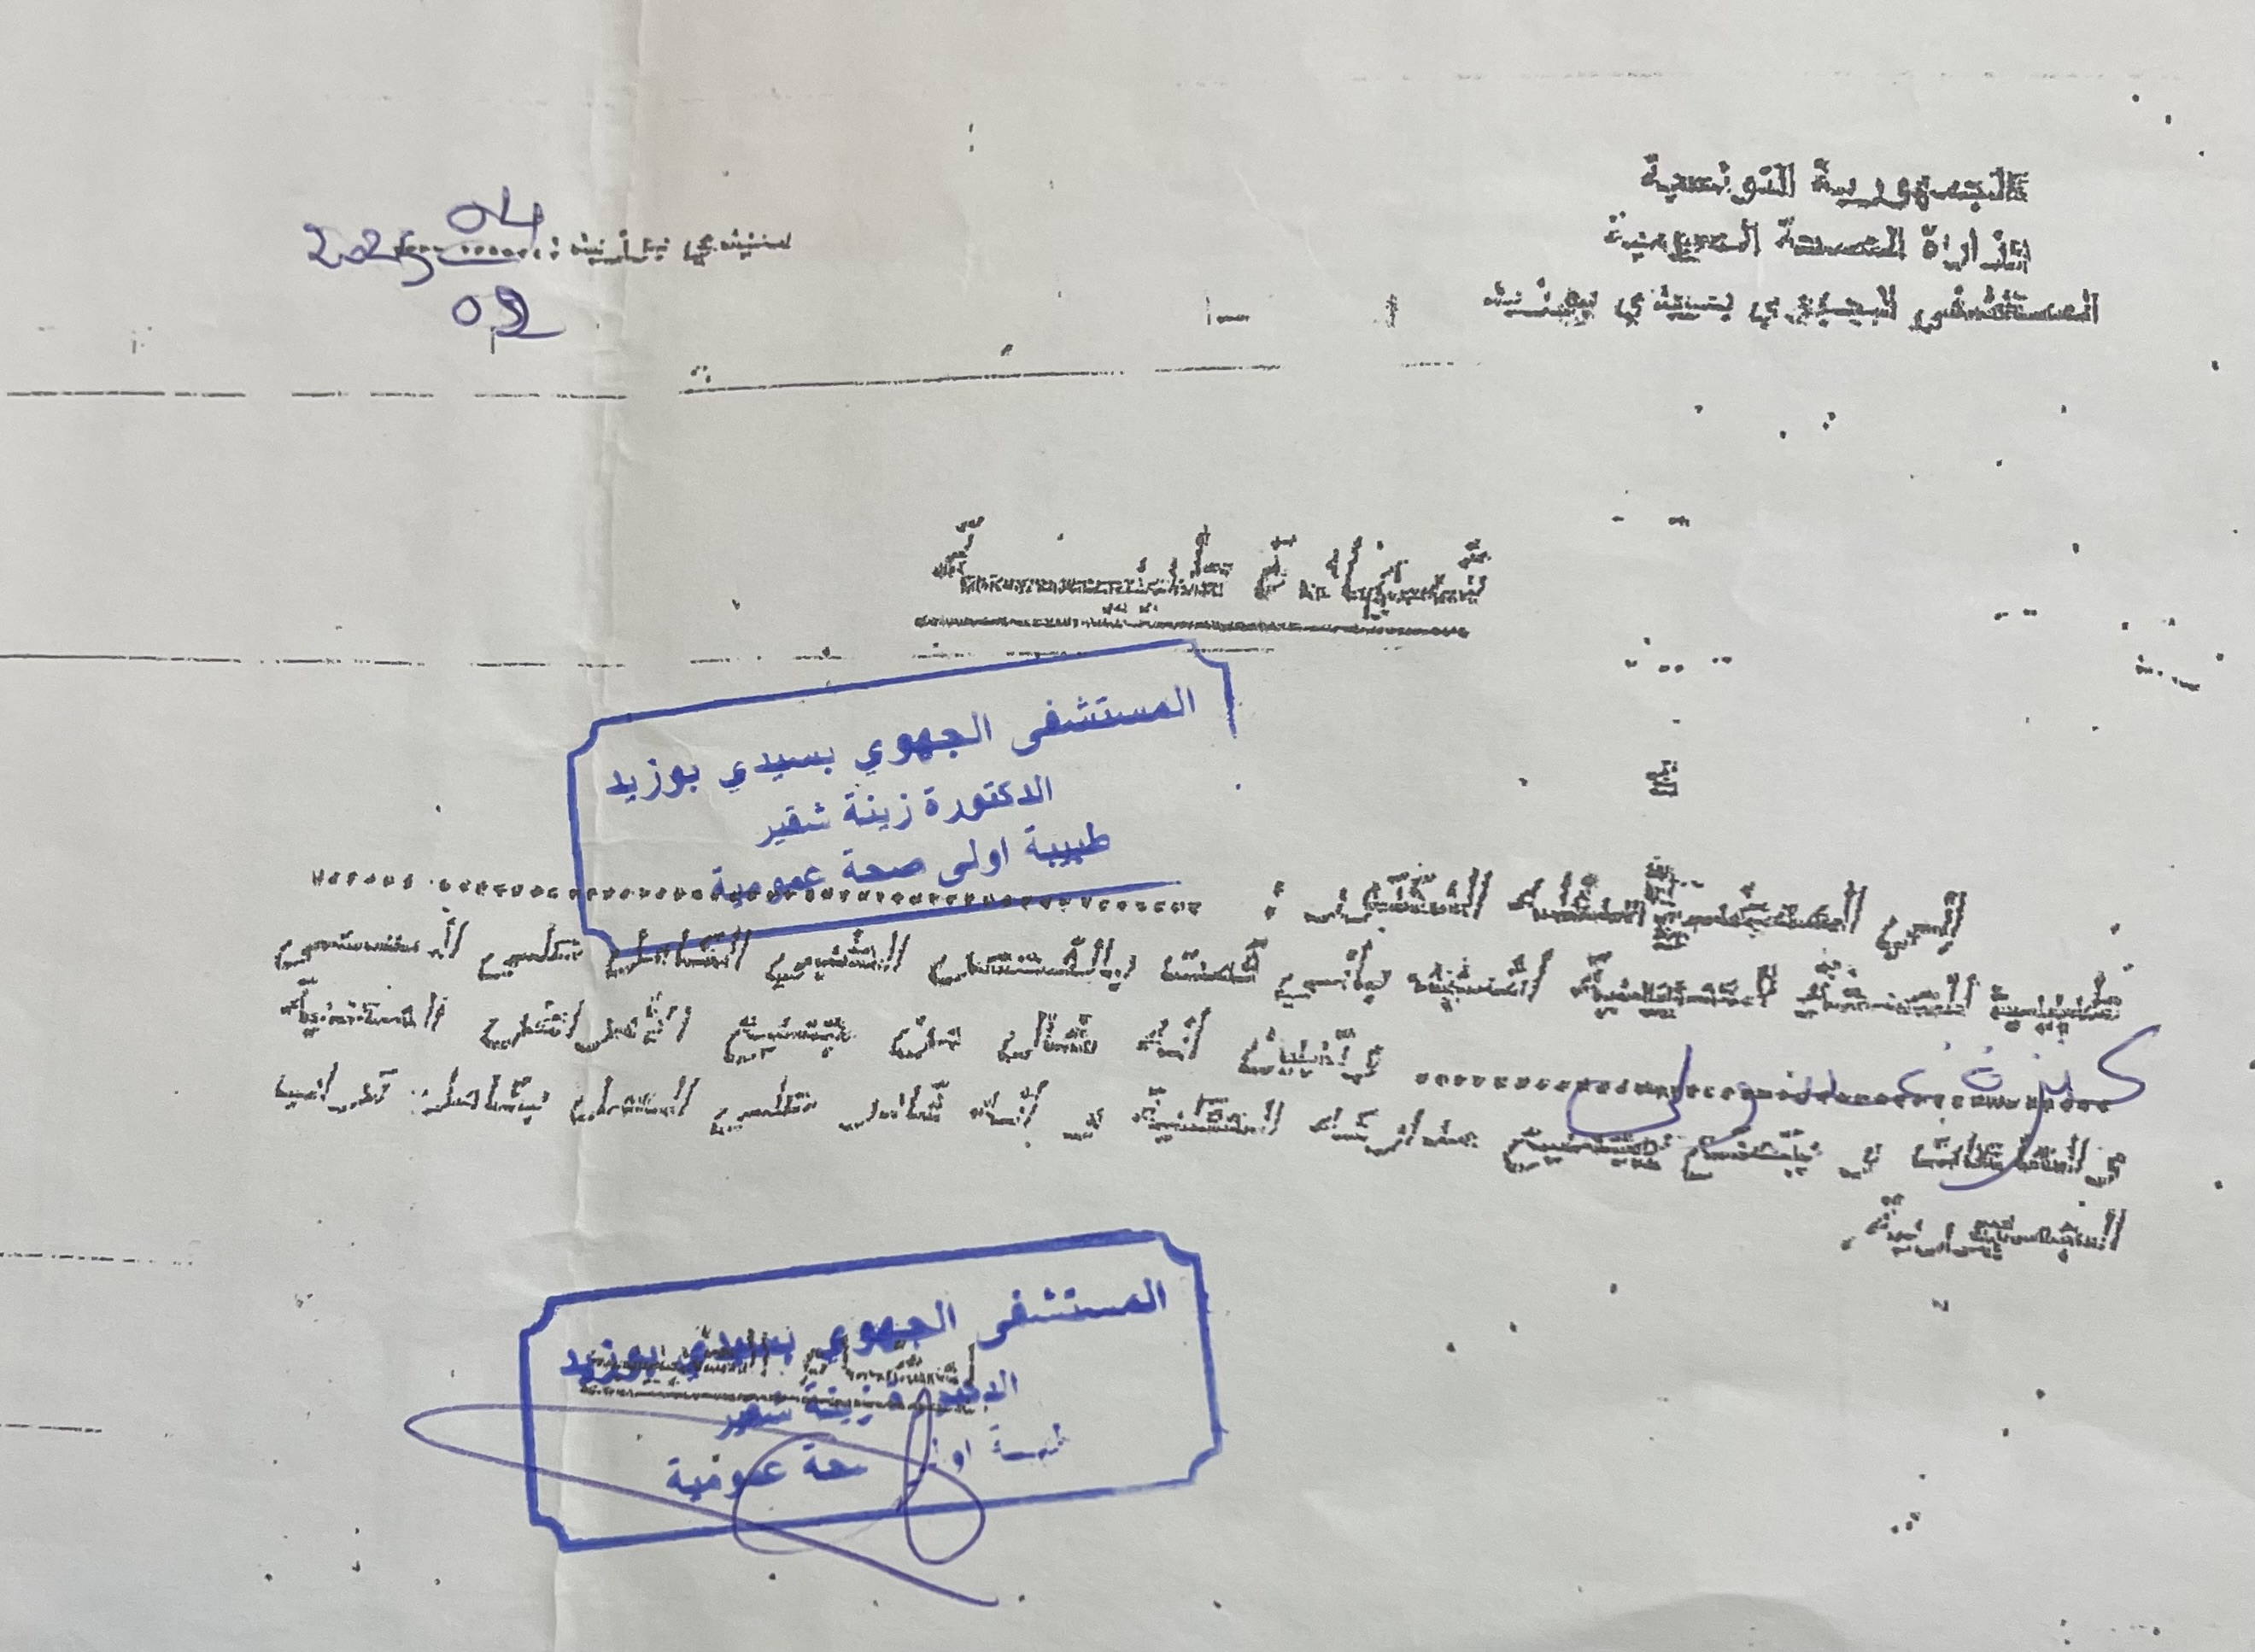 الجمهورية التونسية
وزارة الصحة العمومية
المستشفى الجهوي بسيدي بوزيد
سيدي بوزيد في 04 02 2025
شهادة طبية
المستشفى الجهوي بسيدي بوزيد
الدكتورة زينة شقير
طبيبة اولى صحة عمومية
إني الممضي أسفله الدكتور :
طبيب الصحة العمومية أشهد بأني قمت بالفحص الطبي الشامل على
وتبين أنه خال من جميع الأمراض المعدية
و العاهات و يتمتع بجميع مداركه العقلية و أنه قادر على العمل بكامل تراب
الجمهورية.
المستشفى الجهوي بسيدي بوزيد
الدكتورة زينة شقير
طبيبة اولى صحة عمومية